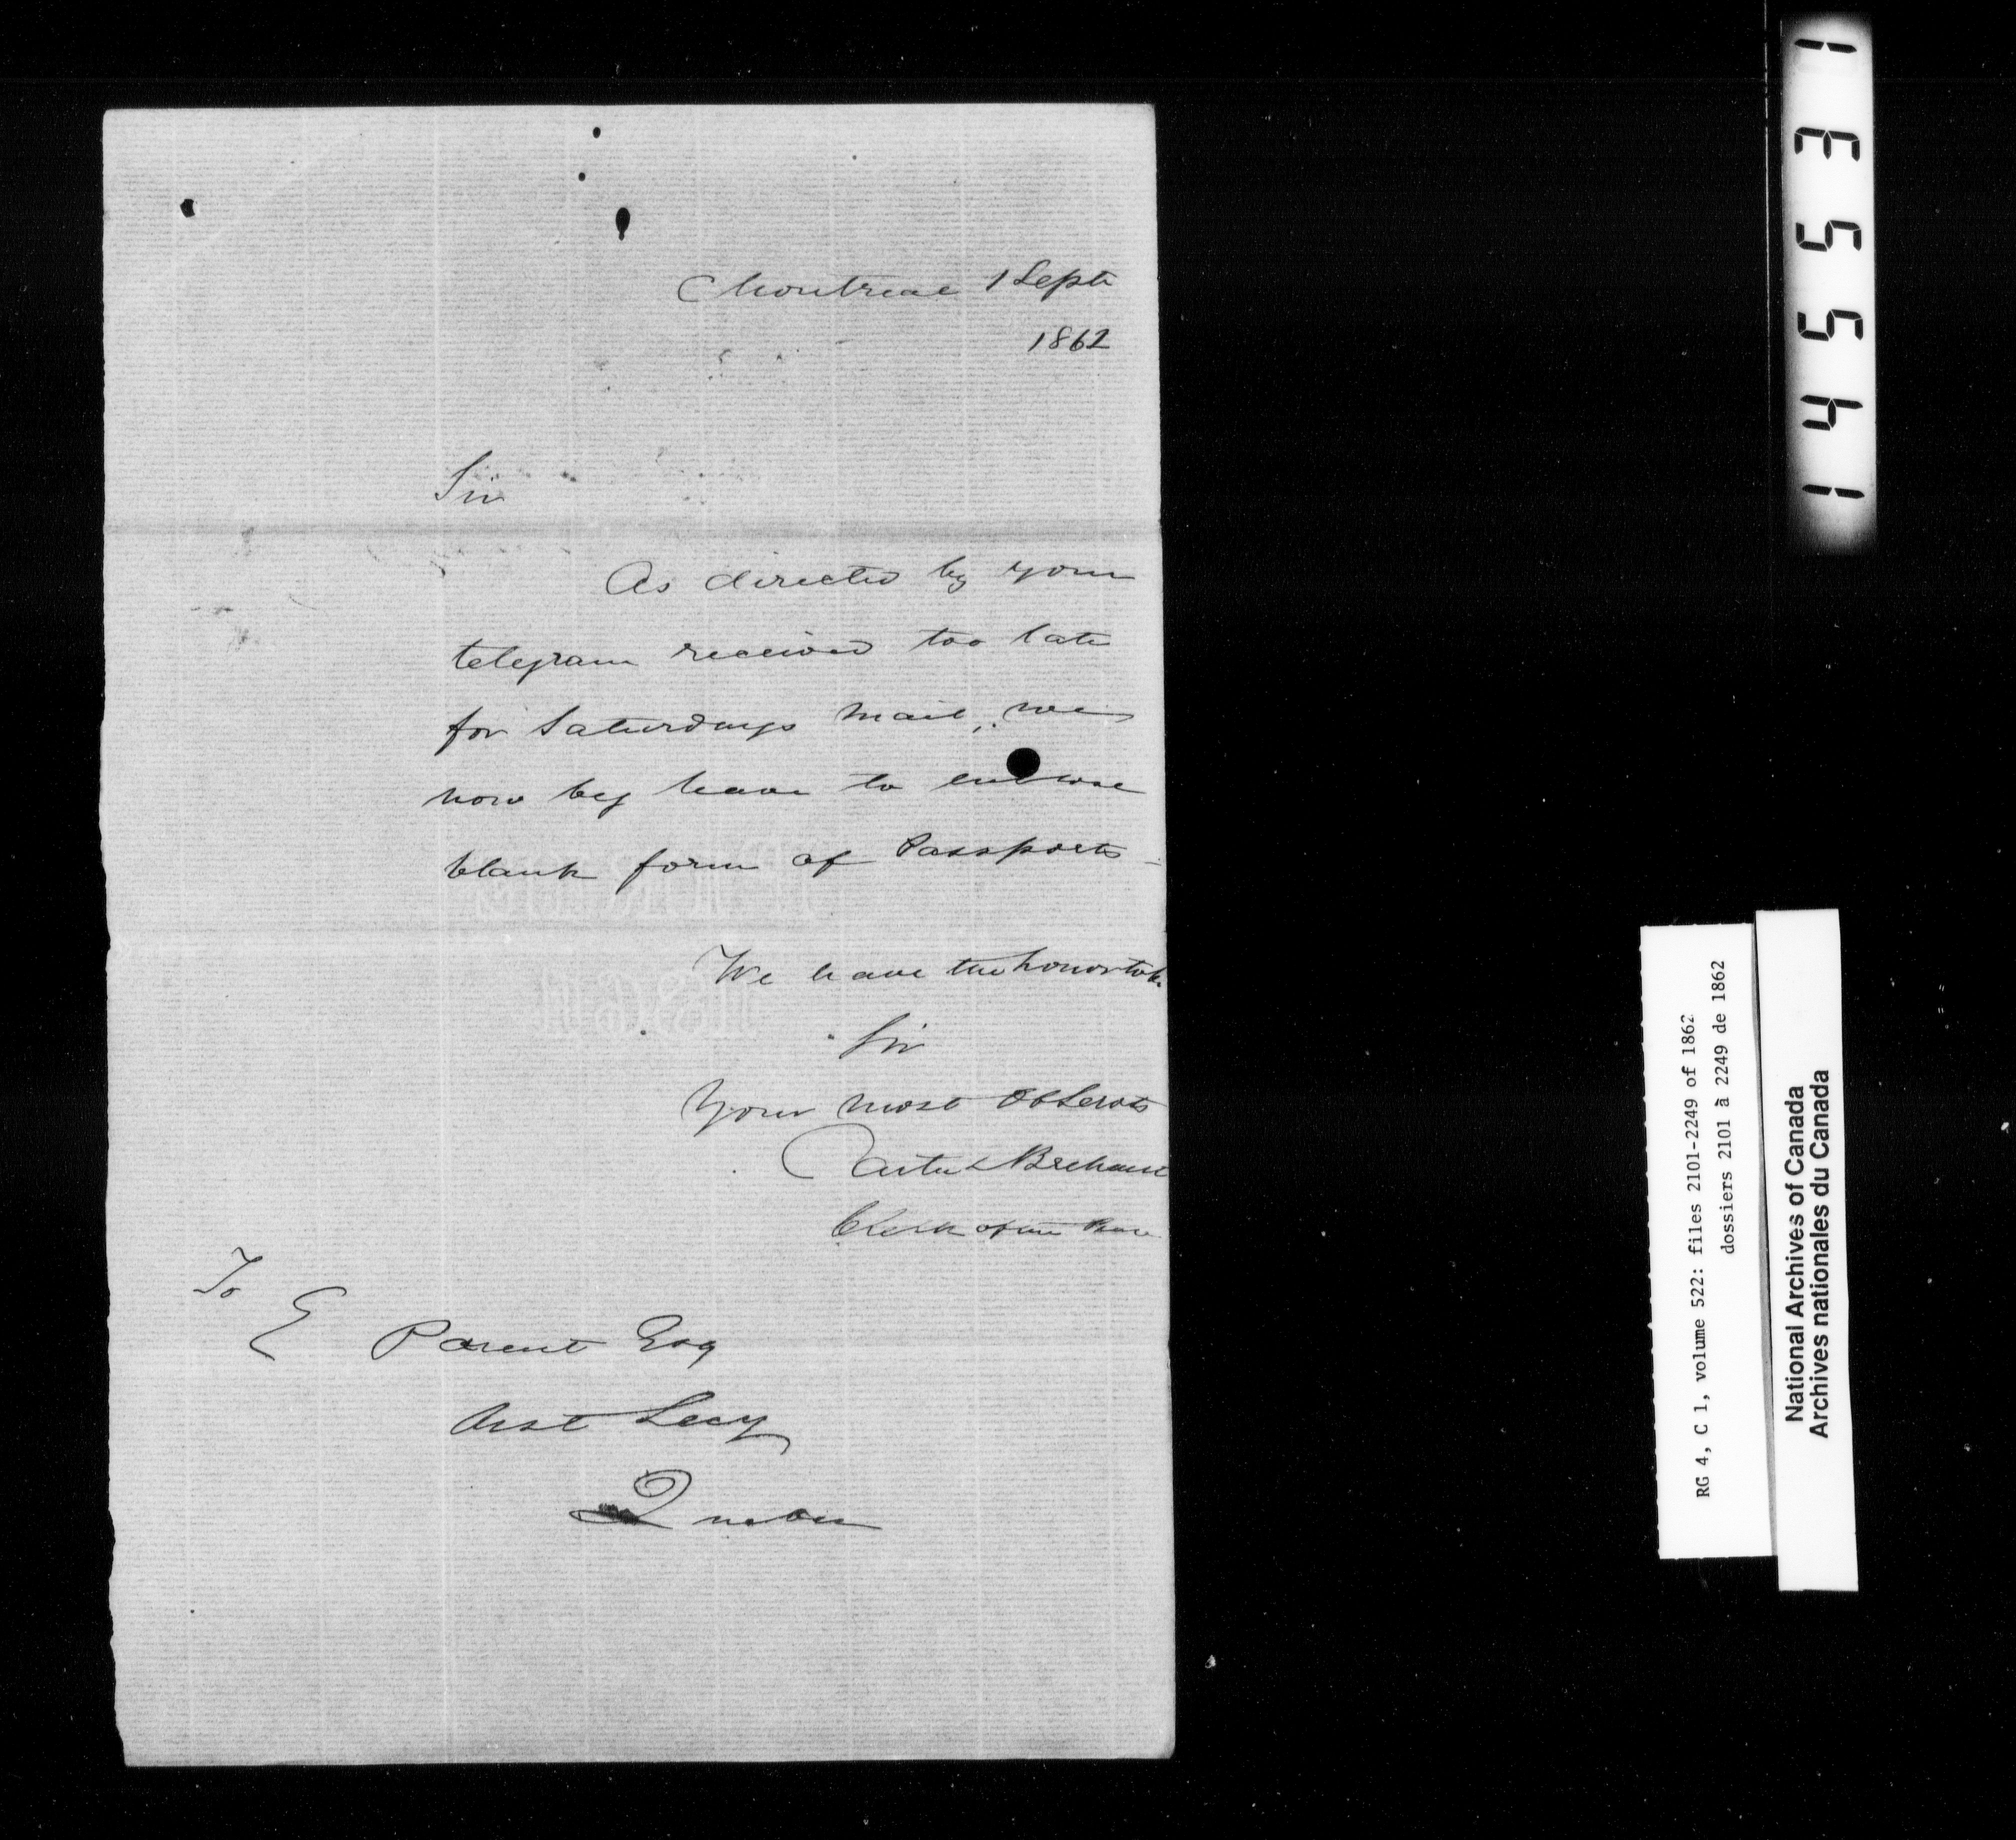 Montreal 1 Septr
1862
Sir
As directed by your
telegram received too late
for Saturdays Mail, we
now beg leave to enclose
blank form of Passports -
We have the honor to be
Sir
Your most Ob Servts
Clerk of the Peace
To
E Parent Esq
Asst Secy
Quebec
145531
RG 4, C 1, volume 522: files 2101-2249 of 1862
dossiers 2101 à 2249 de 1862
National Archives of Canada
Archives nationales du Canada